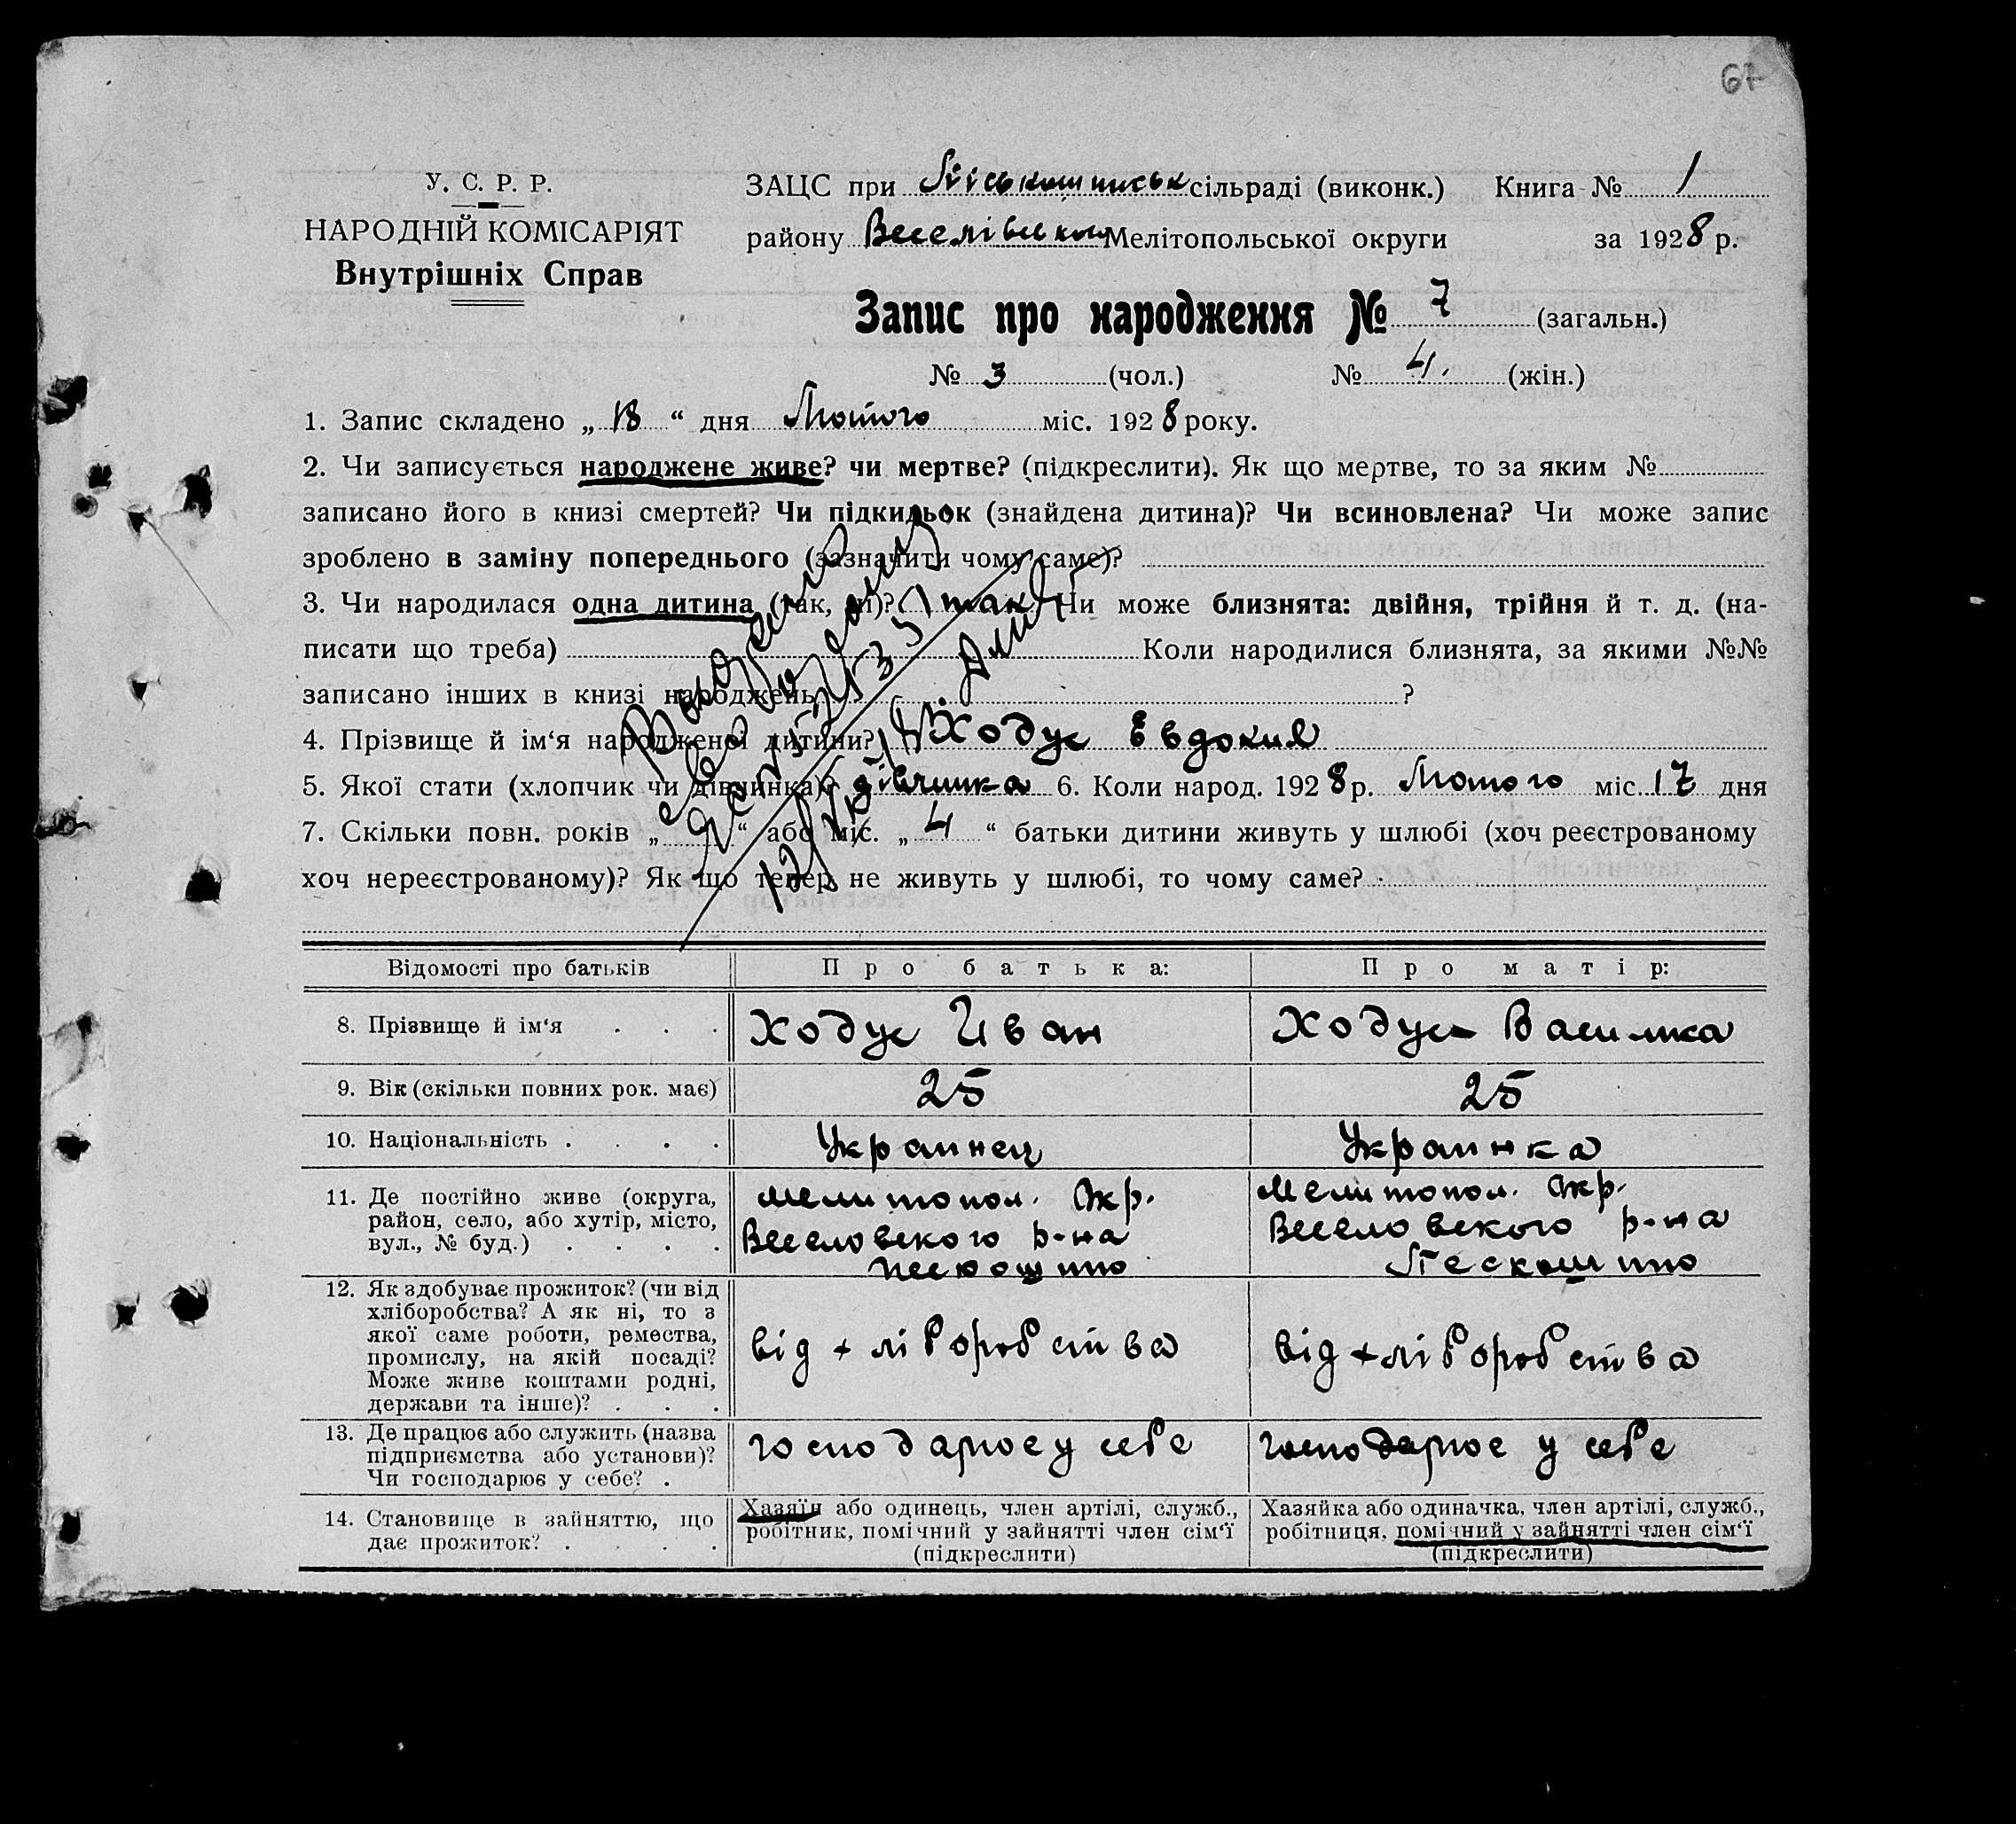 67
У. С. Р. Р.
НАРОДНІЙ КОМІСАРІЯТ
Внутрішніх Справ
ЗАЦС при Піськошинськ сільраді (виконк.) Книга № 1
району Веселівськ Мелітопольської округи за 1928 р.
Запис про народження № 7 (загальн.)
№ 3 (чол.) № 4. (жін.)
1. Запис складено „ 18 “ дня Лютого міс. 1928 року.
2. Чи записується народжене живе? чи мертве? (підкреслити). Як що мертве, то за яким №
записано його в книзі смертей? Чи підкидьок (знайдена дитина)? Чи всиновлена? Чи може запис
зроблено в заміну попереднього (зазначити чому саме)?
3. Чи народилася одна дитина (так, ні)? так Чи може близнята: двійня, трійня й т. д. (на-
писати що треба) Коли народилися близнята, за якими №№
записано інших в книзі народжень ?
4. Прізвище й ім‘я народженої дитини? Ходус Евдокия
5. Якої стати (хлопчик чи дівчинка)? дівчинка 6. Коли народ. 1928 р. Лютого міс. 17 дня
7. Скільки повн. років „ “ або міс. „ 4 “ батьки дитини живуть у шлюбі (хоч реєстрованому
хоч нереєстрованому)? Як що тепер не живуть у шлюбі, то чому саме?
Відомості про батьків Про батька: Про матір:
8. Прізвище й ім‘я Ходус Иван Ходус Василиса
9. Вік (скільки повних рок. має) 25 25
10. Національність Украинец Украинка
11. Де постійно живе (округа, район, село, або хутір, місто, вул., № буд.)
мелитопол. Окр.
Веселовского р-на
Пескошино
Мелитопол. Окр.
Веселовского р-на
Пескошино
12. Як здобуває прожиток? (чи від
хліборобства? А як ні, то з
якої саме роботи, ремества,
промислу, на якій посаді?
Може живе коштами родні,
держави та інше)?
від хліборобства від хліборобства
13. Де працює або служить (назва
підприємства або установи)?
Чи господарює у себе?
господарює у себе господарює у себе
14. Становище в зайняттю, що
дає прожиток?
Хазяїн або одинець, член артілі, служб.,
робітник, помічний у зайнятті член сім‘ї
(підкреслити)
Хазяйка або одиначка, член артілі, служб.,
робітниця, помічний у зайнятті член сім‘ї
(підкреслити)